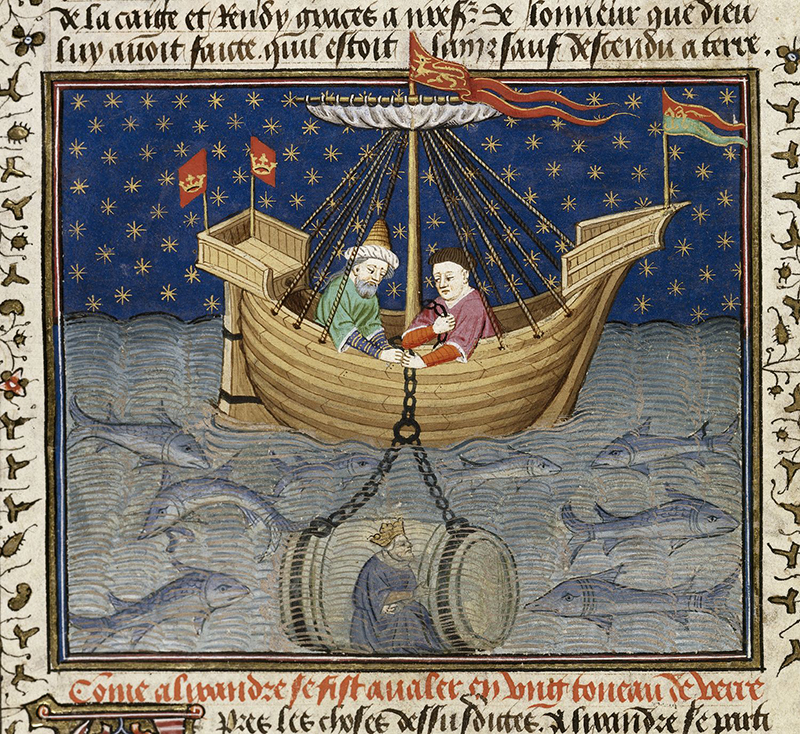 de la caige et Rendy graces a de lonneur que dieu
luy auoit faicte. quil estoit sauf descendu a terre.
Come alixandre se fist aualer en vng toneau de verre
Apres les choses dessusdictes. Alixandre se parti